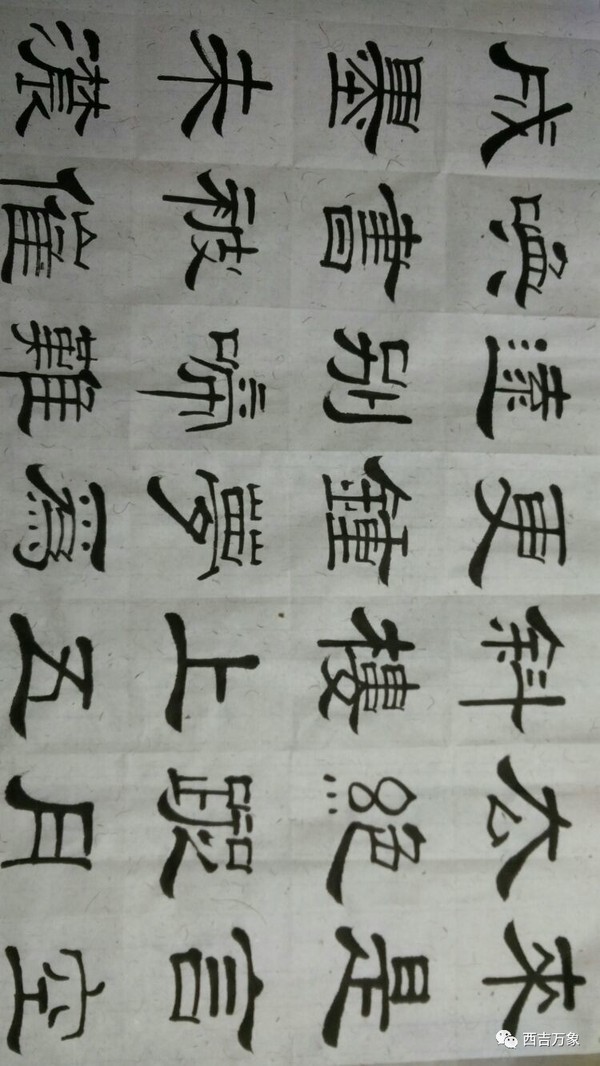 来是言空
去絕蹤月
斜樓上五
更鐘夢為
遠別啼難
喚書被催
成墨未濃
西吉万象